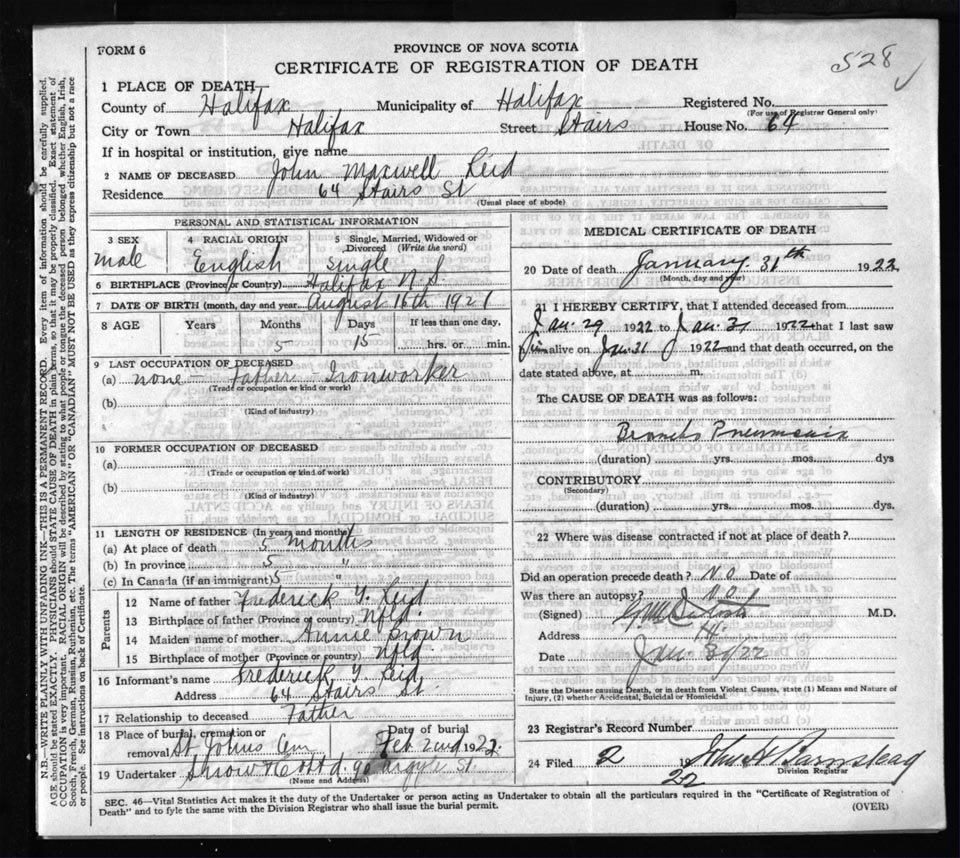 FORM 6
PROVINCE OF NOVA SCOTIA
CERTIFICATE OF REGISTRATION OF DEATH
528
1 PLACE OF DEATH
County of Halifax Municipality of Halifax Registered No.
(For use of Registrar General only)
City or Town Halifax Street Stairs House No. 64
If in hospital or institution, give name
2 NAME OF DECEASED John Maxwell Reid
Residence 64 Stairs St
(Usual place of abode)
PERSONAL AND STATISTICAL INFORMATION
3 SEX 4 RACIAL ORIGIN 5 Single, Married, Widowed or Divorced (Write the word)
male English Single
6 BIRTHPLACE (Province or Country) Halifax N.S.
7 DATE OF BIRTH (month, day and year) August 16th 1921
8 AGE Years Months Days If less than one day,
5 15 hrs. or min.
9 LAST OCCUPATION OF DECEASED
(a) none Father Ironworker
(Trade or occupation or kind of work)
(b)
(Kind of industry)
10 FORMER OCCUPATION OF DECEASED
(a)
(Trade or occupation or kind of work)
(b)
(Kind of industry)
11 LENGTH OF RESIDENCE (In years and months)
(a) At place of death 5 months
(b) In province 5 "
(c) In Canada (if an immigrant) 5 "
Parents
12 Name of father Frederick Y. Reid
13 Birthplace of father (Province or country) Nfld
14 Maiden name of mother Annie Brown
15 Birthplace of mother (Province or country) Nfld
16 Informant's name Frederick Y. Reid
Address 64 Stairs St.
17 Relationship to deceased Father
18 Place of burial, cremation or removal St. Johns Cem Date of burial Feb 2nd 1922
19 Undertaker Snow & Co Ltd. 90 Argyle St.
(Name and Address)
MEDICAL CERTIFICATE OF DEATH
20 Date of death January 31th 1922
(Month, day and year)
21 I HEREBY CERTIFY, that I attended deceased from
Jan 29 1922 to Jan 31 1922 that I last saw
him alive on Jan 31 1922 and that death occurred, on the
date stated above, at m.
The CAUSE OF DEATH was as follows:
Broncho Pneumonia
(duration) yrs. mos. dys
CONTRIBUTORY
(Secondary)
(duration) yrs. mos. dys.
22 Where was disease contracted if not at place of death?
Did an operation precede death? No Date of
Was there an autopsy? No
(Signed) M.D.
Address
Date Jan 31/22
State the Disease causing Death, or in death from Violent Causes, state (1) Means and Nature of
Injury, (2) whether Accidental, Suicidal or Homicidal.
23 Registrar's Record Number
24 Filed 2 19 22 John H Barnstead
Division Registrar
SEC. 46—Vital Statistics Act makes it the duty of the Undertaker or person acting as Undertaker to obtain all the particulars required in the "Certificate of Registration of
Death" and to fyle the same with the Division Registrar who shall issue the burial permit.
(OVER)
N.B.—WRITE PLAINLY WITH UNFADING INK—THIS IS A PERMANENT RECORD. Every item of information should be carefully supplied.
AGE should be stated EXACTLY. PHYSICIANS should STATE CAUSE OF DEATH in plain terms, so that it may be properly classified. Exact statement of
OCCUPATION is very important. RACIAL ORIGIN will be described by stating to what people or tongue the deceased person belonged whether English, Irish,
Scotch, French, German, Russian, Ruthenian, etc. The terms "AMERICAN" OR "CANADIAN" MUST NOT BE USED as they express citizenship but not a race
or people. See instructions on back of Certificate.